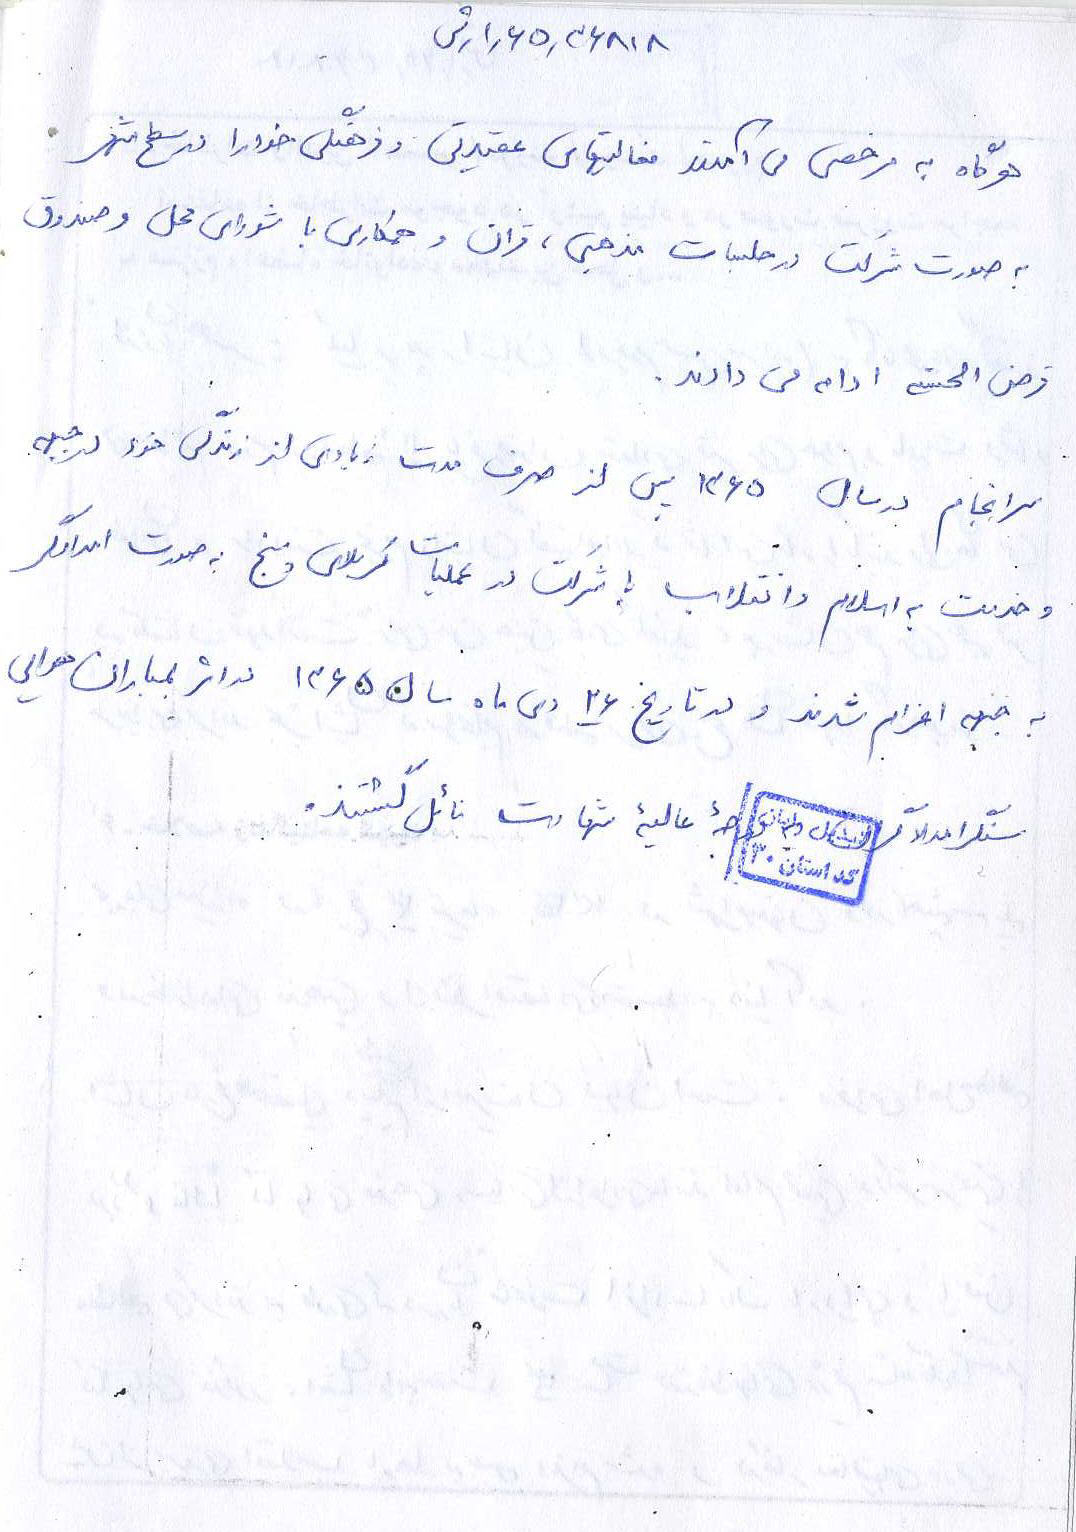 هرگاه به مرخصی می آمدند فعالیتهای عقیدتی و فرهنگی خود را در سطح شهر
به صورت شرکت در جلسات مذهبی، قرآن و همکاری با شورای محل و صندوق
قرض الحسنه ادامه می دادند.
سرانجام در سال ۱۳۶۵ پس از صرف مدت زیادی از زندگی خود در جبهه
و خدمت به اسلام و انقلاب با شرکت در عملیات کربلای پنج به صورت امدادگر
به جبهه اعزام شدند و در تاریخ ۲۶ دی ماه سال ۱۳۶۵ در اثر بمباران هوایی
سنگر امدادگر درجهٔ عالیهٔ شهادت نائل گشتند.
کد استان ۳۰